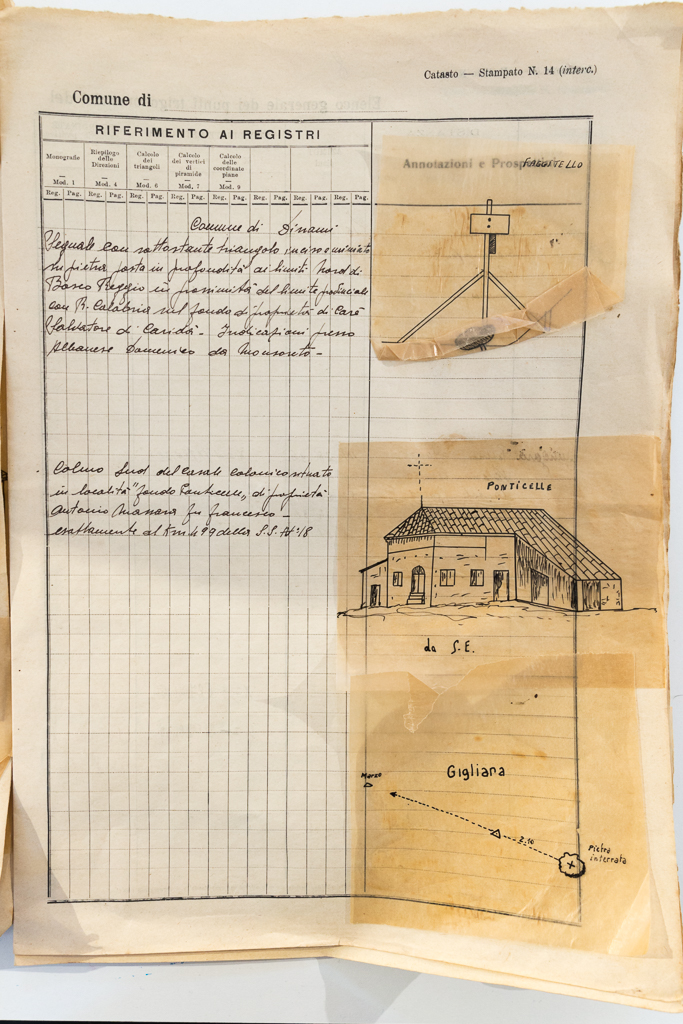 Catasto — Stampato N. 14 (interc.)
Comune di
RIFERIMENTO AI REGISTRI
Monografie — Mod. 1
Riepilogo delle Direzioni — Mod. 4
Calcolo dei triangoli — Mod. 6
Calcolo dei vertici di piramide — Mod. 7
Calcolo delle coordinate piane — Mod. 9
Reg. Pag. Reg. Pag. Reg. Pag. Reg. Pag. Reg. Pag. Reg. Pag. Reg. Pag.
Annotazioni e
FAGGITELLO
Comune di Dinami
Segnale con sottostante triangolo inciso e miniato
su pietra posta in profondità ai limiti Nord di
Bosco Reggio in prossimità del limite provinciale
con R. Calabria nel fondo di proprietà di Carè
Salvatore di Caridà - Indicazioni presso
Albanese Domenico da Monsoreto -
Colmo Sud del casale colonico situato
in località "fondo Ponticelle, di proprietà
Antonio Massara fu Francesco -
esattamente al Km 499 della S.S. N° 18
PONTICELLE
da S.E.
Gigliana
Marzo
2.10
Pietra
interrata